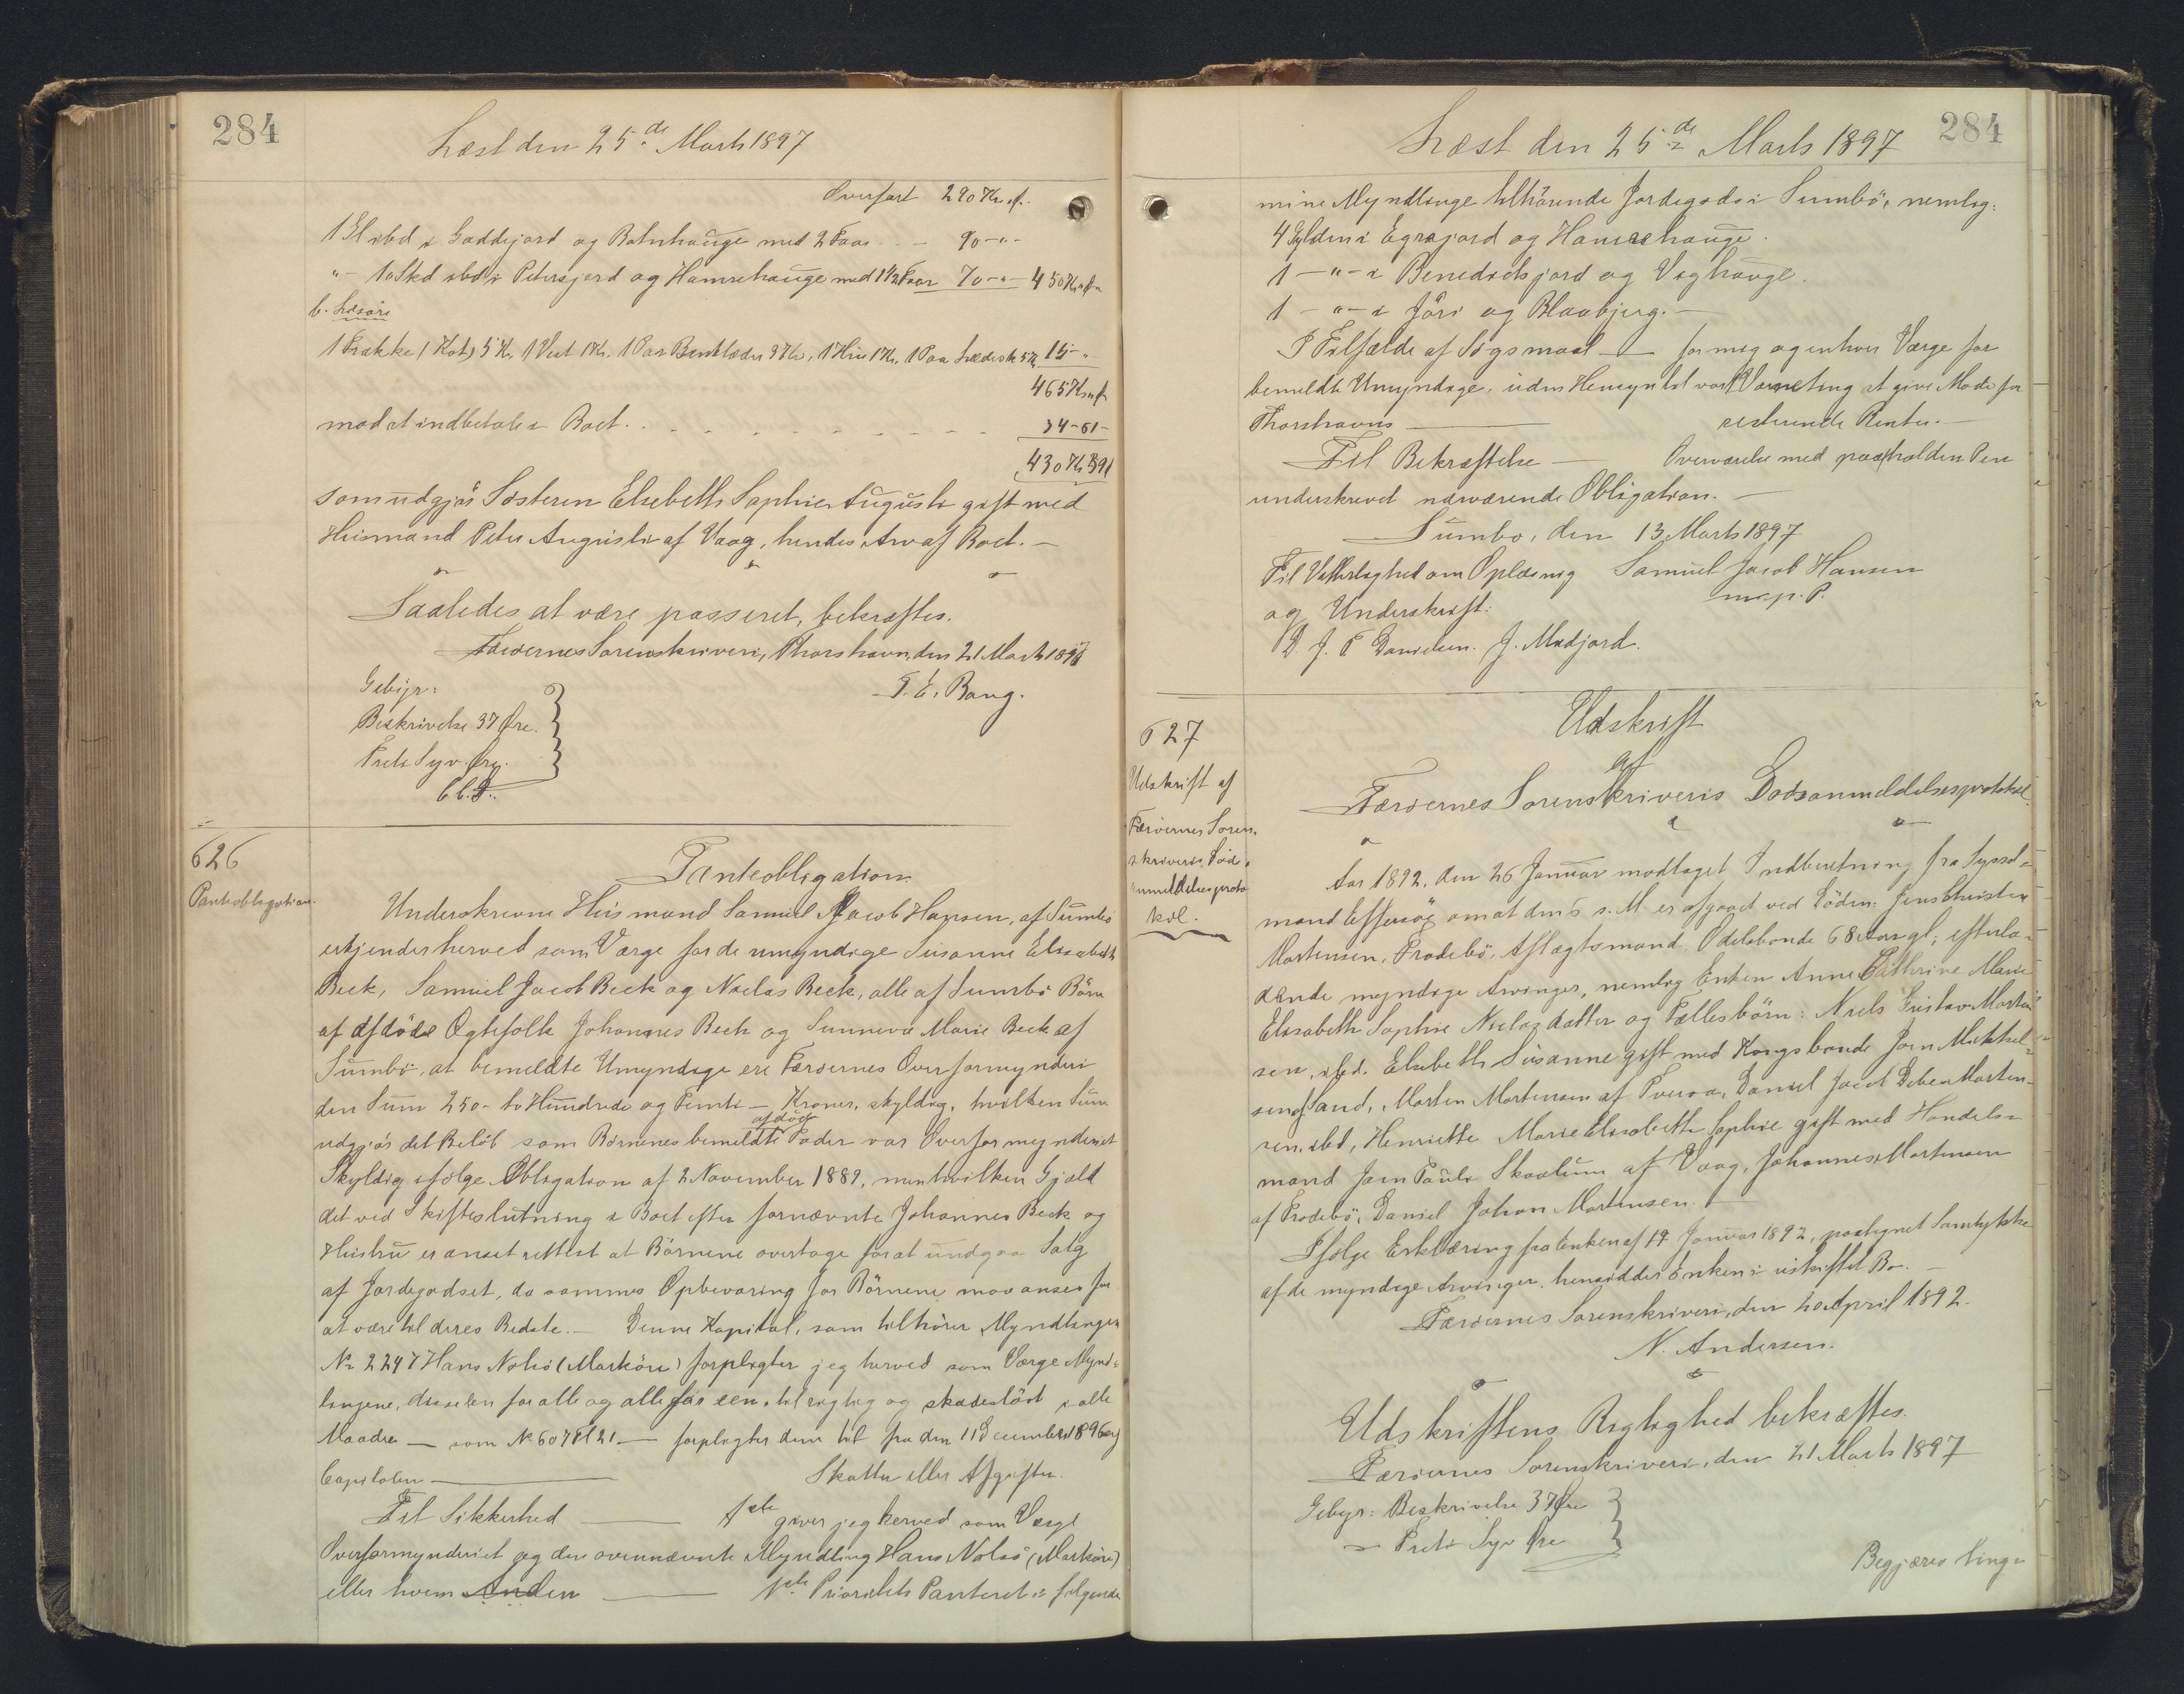 284
Læst den 25de Marts 1897
Overført 290 Kr. Ø.
1 Gl ibd i Gaddejord og Botnhauge med 2 Faar - - 90 -"-
"- 10 Skd ibd i Petersjord og Hamrehauge med 1 1/2 Faar 70 -"- 450 Kr Ø
b. Løsøre
1 Frakke (Kot) 5 Kr, 1 Vest 1 Kr, 1 Par Benklæder 3 Kr, 1 Hue 1 Kr, 1 Par 5 Kr 15 - "
465 Kr Ø
mod at indbetale i Boet. . - - - - - - - 34-61-
430 Kr 39
som udgjør Søsteren Elsebeth Sophie Augusti gift med
Huusmand Peter Augusti af Vaag, hendes Arv af Boet. -
Saaledes at være passeret, bekræftes.
Færøernes Sorenskriveri, Thorshavn, den 21 Marts 1897
Gebyr:
T. E. Bang.
Beskrivelse 37 Øre.
Treti Syv Øre.
626
Panteobligation.
Panteobligation
Underskrevne Huusmand Samuel Jacob Hansen, af Sumbø
erkjender herved som Værge for de umyndige Susanne Elisabeth
Beck, Samuel Jacob Beck og Niclas Beck, alle af Sumbø Børn
af afdøde Ægtefolk Johannes Beck og Sunneva Marie Beck af
Sumbø, at bemeldte Umyndige ere Færøernes Overformynderi
den Sum 250 - to Hundrede og Femti - Kroner, skyldig, hvilken Sum
udgjør det Beløb som Børnenes bemeldte afdøde Fader var Overformynderiet
Skyldig ifølge Obligation af 2 November 1889, men hvilken Gjæld
det ved Skifteslutning i Boet efter fornævnte Johannes Beck og
Hustru er anset rettest at Børnene overtage for at undgaa Salg
af Jordegodset, da sammes Opbevaring for Børnene maa anses for
at være til deres Bedste. - Denne Kapital, som tilhører Myndlingen
No 2247 Hans Nolsø (Markøre) forpligter jeg herved som Værge Mynd-
lingene, disse een for alle og alle for een, til rigtig og skadesløst i alle
Maader - som No 607 Pl 21 - forpligter dem til fra den 11 December 1896 og
Capitalen - Skatter eller Afgifter.
Til Sikkerhed - giver jeg herved som Værge
Overformynderiet og den ovennævnte Myndling Hans Nolsø (Markøre)
eller hvem Anden - 1ste Prioritets Panteret i følgende
284
Læst den 25de Marts 1897
mine Myndlinge tilhørende Jordegods i Sumbø, nemlig:
4 Gylden i Egrajord og Hamrehauge.
1 - " - i Benedictsjord og Vighauge.
1 - " - i Jøri og Blaabjerg. -
I Tilfælde af Søgsmaal - for mig og enhver Værge for
bemeldte Umyndige, uden Hensyn til vort Værneting at give Møde for
Thorshavns - resterende Renter. -
Til Bekræftelse - Overværelse med paaholden Pen
underskrevet nærværende Obligation. -
Sumbø, den 13 Marts 1897
Til Vitterlighed om Oplæsning Samuel Jacob Hansen
og Underskrift: m. p. P.
D. J. P Danielsen. J. Midjord.
627
Udskrift af
Færøernes Soren-
skriveris Død-
anmeldelsesproto
kol.
Udskrift
af
Færøernes Sorenskriveris Dødsanmeldelsesprotokol
Aar 1892, den 26 Januar modtaget Indberetning fra Syssel-
mand Effersøe om at den 5 s. M. er afgaaet ved Døden: Jens Christen
Mortensen, Frodebø, Aftægtsmand, Odelsbonde 68 Aar gl, efterla-
dende myndige Arvinger, nemlig Enken Anne Cathrine Marie
Elisabeth Sophie Niclasdatter og Fællesbørn: Niels Gustav Morten
sen, ibd. Elsebeth Susanne gift med Kongsbonde Joen Mikkel-
sen, Sand, Morten Mortensen af Tveraa, Daniel Jacob Debes Morten-
sen, ibd, Henriette Marie Elisabeth Sophie gift med Handels-
mand Joen Pauli Skaalum af Vaag, Johannes Mortensen
af Frodebø, Daniel Johan Mortensen.
Ifølge Erklæring fra Enken af 19 Januar 1892, paategnet Samtykke
af de myndige Arvinger, hensidder Enken i uskiftet Bo. -
Færøernes Sorenskriveri, den 20 April 1892.
N. Andersen.
Udskriftens Rigtighed bekræftes.
Færøernes Sorenskriveri, den 21 Marts 1897
Gebyr: Beskrivelse 37 Øre
Treti Syv Øre
Begjæres ting-